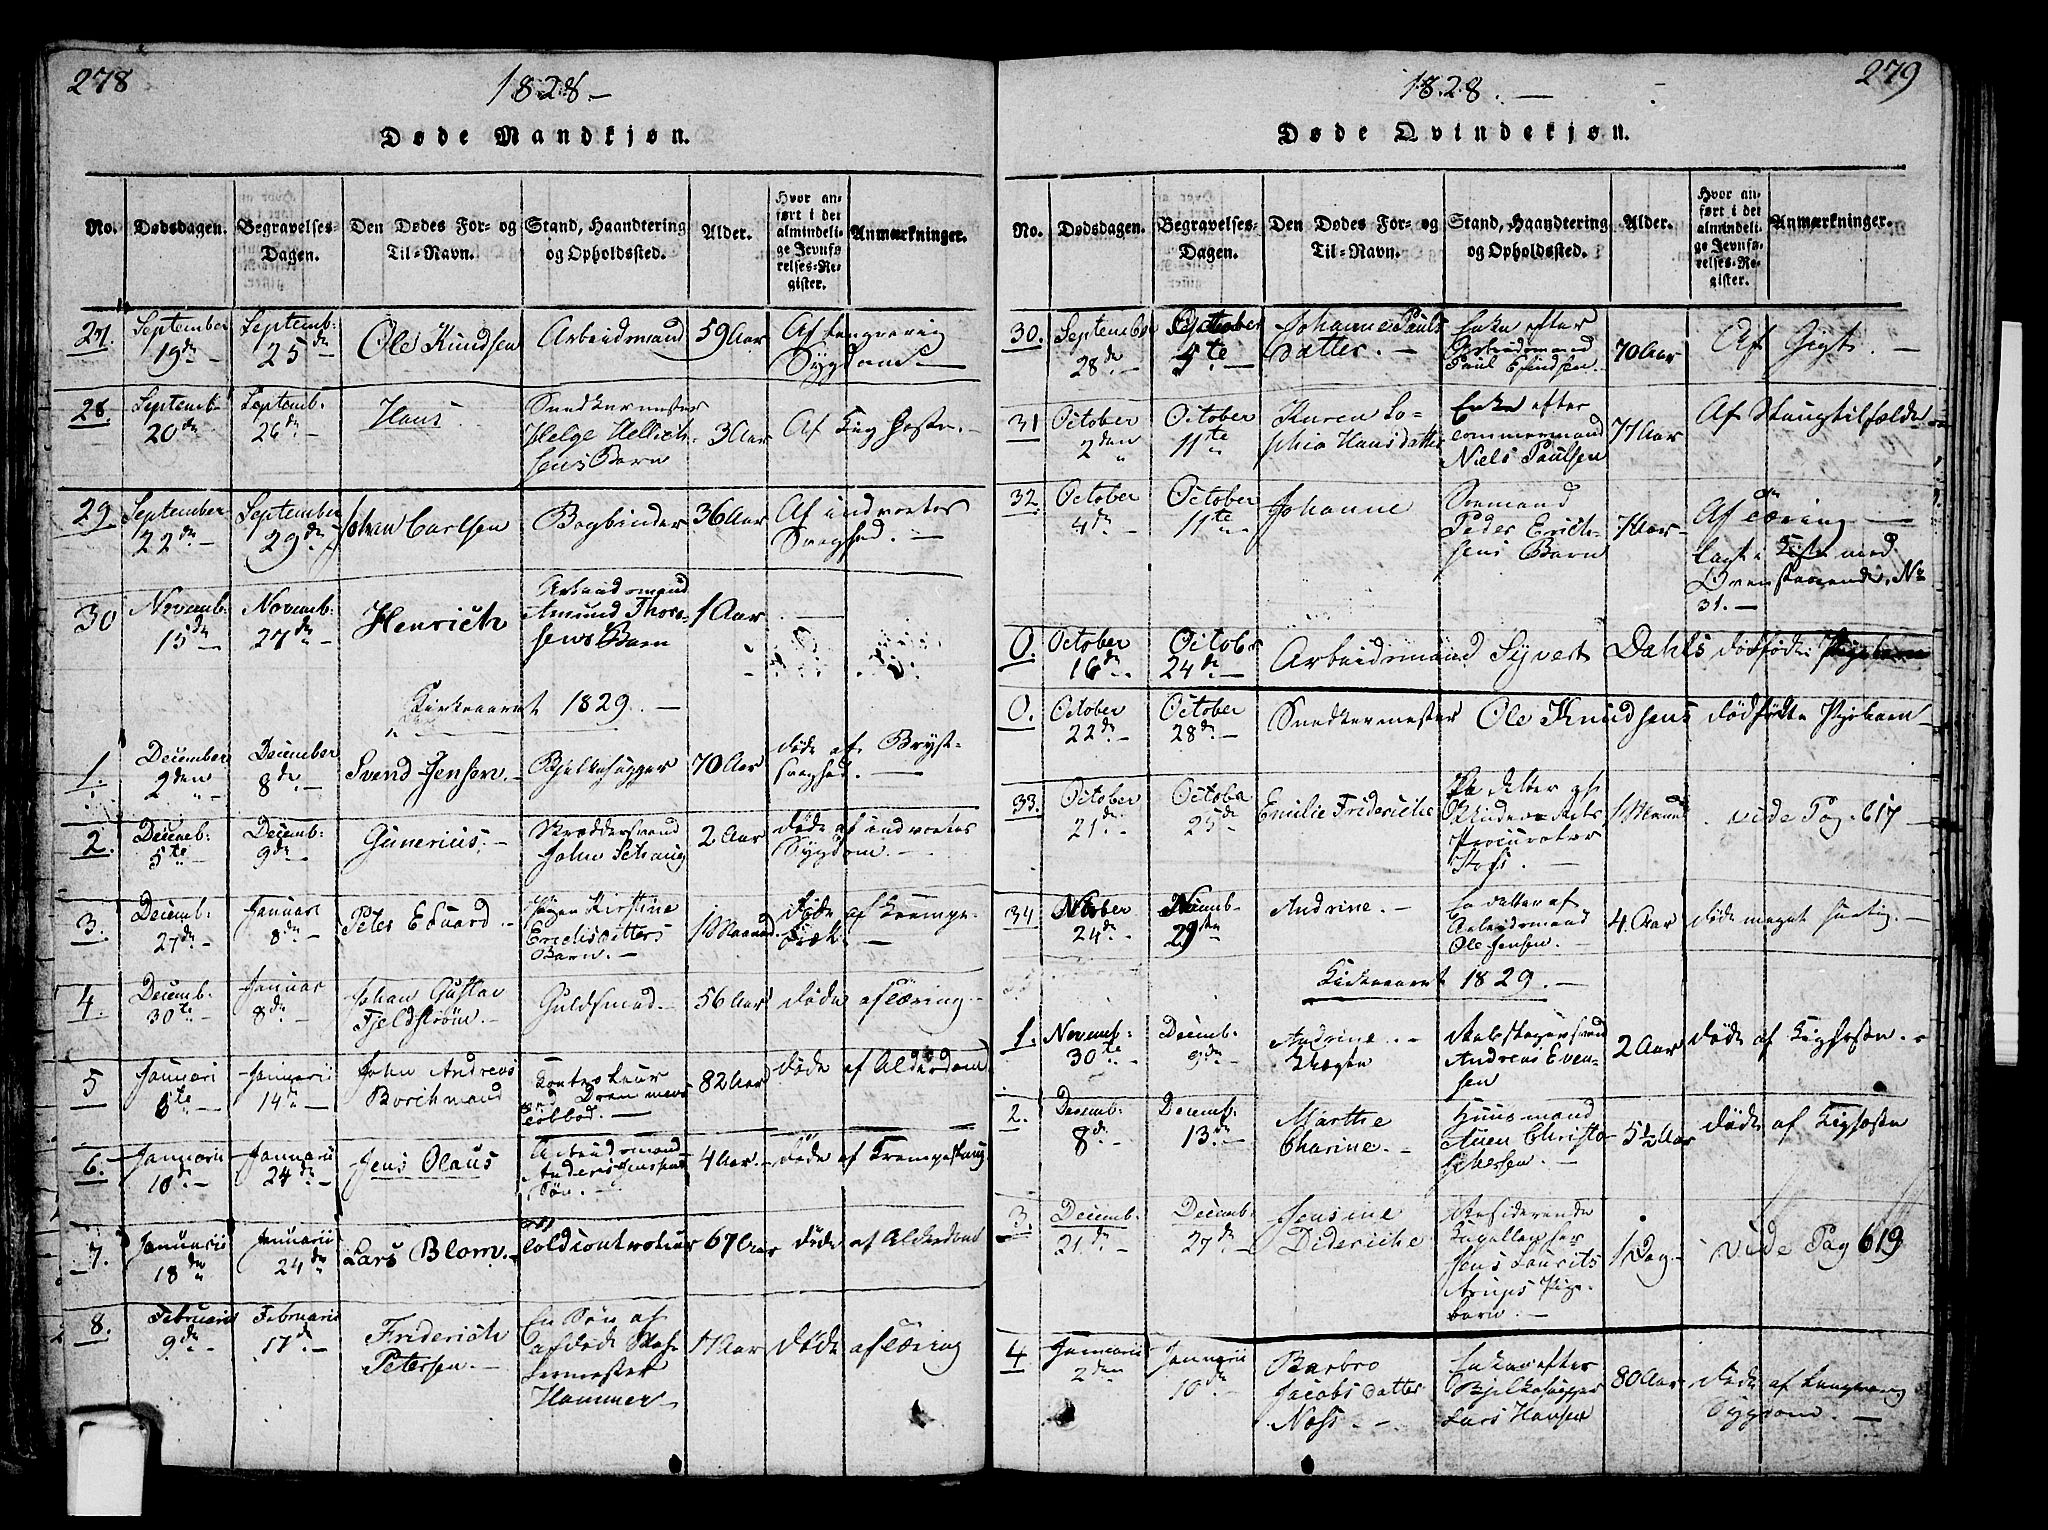 278
1828.-
Døde Mandkjøn.
No. Dødsdagen. Begravelses-Dagen. Den Dødes For- og Til-Navn. Stand, Haandtering og Opholdssted. Alder. Hvor anført i det almindelige Jevnførelses-Register. Anmærkninger.
27. September 19de September 25de Ole Knudsen Arbeidsmand 59 Aar Af langvarig Sygdom
28. Septemb. 20de Septemb. 26de Hans Snedkermester Helge Barn 3 Aar Af Kighoste.
29 September 22de September 29de Johan Carlsen Bogbinder 36 Aar Af indvortes Svaghed.
30 Novemb: 15de Novemb: 27de Henrich Arbeidsmand Amund Thorsens Barn 1 Aar
Kirkeaaret 1829.
1. December 2den December 8de Svend Jensen Bjelkehugger 70 Aar døde af Brystsvaghed.
2. Decemb: 5te Decemb: 9de Gunerius Skræddersvend John Schaug 2 Aar døde af indvortes Sygdom.
3. Decemb: 27de Januari 8de Peter Eduard Pigen Kirstine Barn 1 Maaned døde af Krampe
4. Decemb: 30te Januar 8de Johan Gustav Fjeldstrøm Guldsmed 56 Aar døde af Tæring
5 Januari 6te Januarii 14de John Andreas Borchmand Kontrolleur ved Drammens Toldbod 82 Aar døde af Alderdom
6. Januarii 18de Januarii 24de Jens Olaus Arbeidsmand Anders Jensens Søn 4 Aar døde af Krampe
7. Januarii 18de Januarii 24de Lars Blom Toldcontroleur 67 Aar døde af Alderdom
8. Februarii 9de Februarii 17de Friderich Petersen En Søn af afdøde Hammer 17 Aar døde af Tæring
279
1828.
Døde Qvindekjøn.
No. Dødsdagen. Begravelses-Dagen. Den Dødes For- og Til-Navn. Stand, Haandtering og Opholdssted. Alder. Hvor anført i det almindelige Jevnførelses-Register. Anmærkninger.
30. September 28de October 5te Johanne Pauls Datter Enke efter Arbeidsmand Paul 70 Aar Af Gigt.
31 October 2den October 11te Karen Sophia Hansdatter Enke efter Niels Paulsen 77 Aar Af Slagtilfælde
32. October 4de October 11te Johanne Soemand Peder Erichsens Barn 7 Aar Af Tæring lagt i Kiste med Ovenstaaende No 31.
0. October 16de October 24de Arbeidsmand Syvert Dahls dødfødte Pigebarn
0. October 22de October 28de Snedkermester Ole Knudsens dødfødte Pigebarn
33. October 21de October 25de Emilie Frideriche Procurator 1 Maaned vide Pag. 617
34 24de 29de Andrine. En datter af Arbeidsmand Ole Jensen. 4. Aar døde meget hastig.
Kirkeaaret 1829.
1. Novemb: 30te Decemb: 9de Andrine Andreas Evensen 2 Aar døde af Kighosten
2. Decemb: 8de Decemb: 13de Marthe Charine Huusmand Christophersen. 5½ Aar døde af Kighosten
3. Decemb. 21de Decemb. 27de Jensine Dideriche Residerende Capellan Jens Laurits Arups Pigebarn. 1 Dag vide Pag 619
4 Januarii 2den Januarii 10de Barbro Jacobs datter Næss Enken efter Bjelkehugger Lars Hansen 80 Aar døde af langvarig Sygdom.